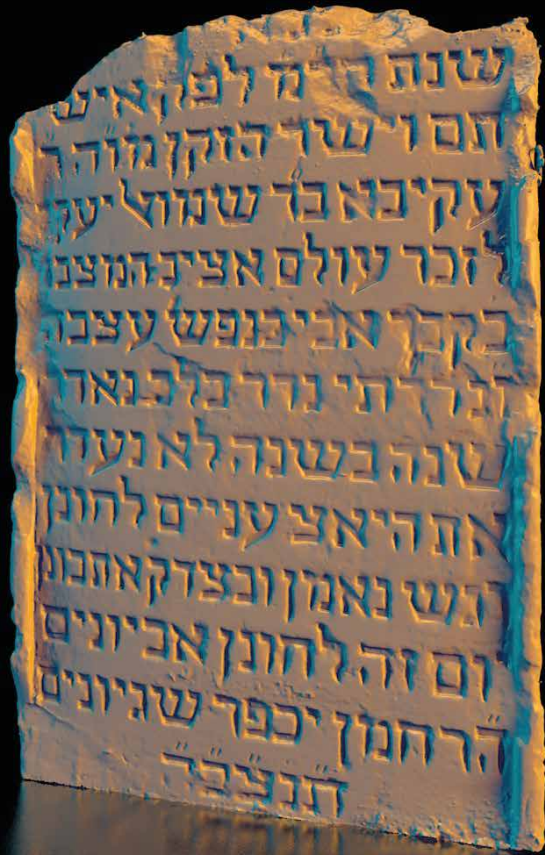 שנת לפק איש
תם וישר הזקן מוה ר
עקיבא בר שמואל יעק
לזכר עולם אציב המצב
בקבר אבי בנפש עצבה
ונדרתי נדר בלב נאדר
שנה בשנה לא נעדר
את היאצ עניים לחונן
רגש נאמן ובצדקה אתכונן
יום זה לחונן אביונים
הרחמן יכפר שגיונים
ת״נ״צ״ב״ה